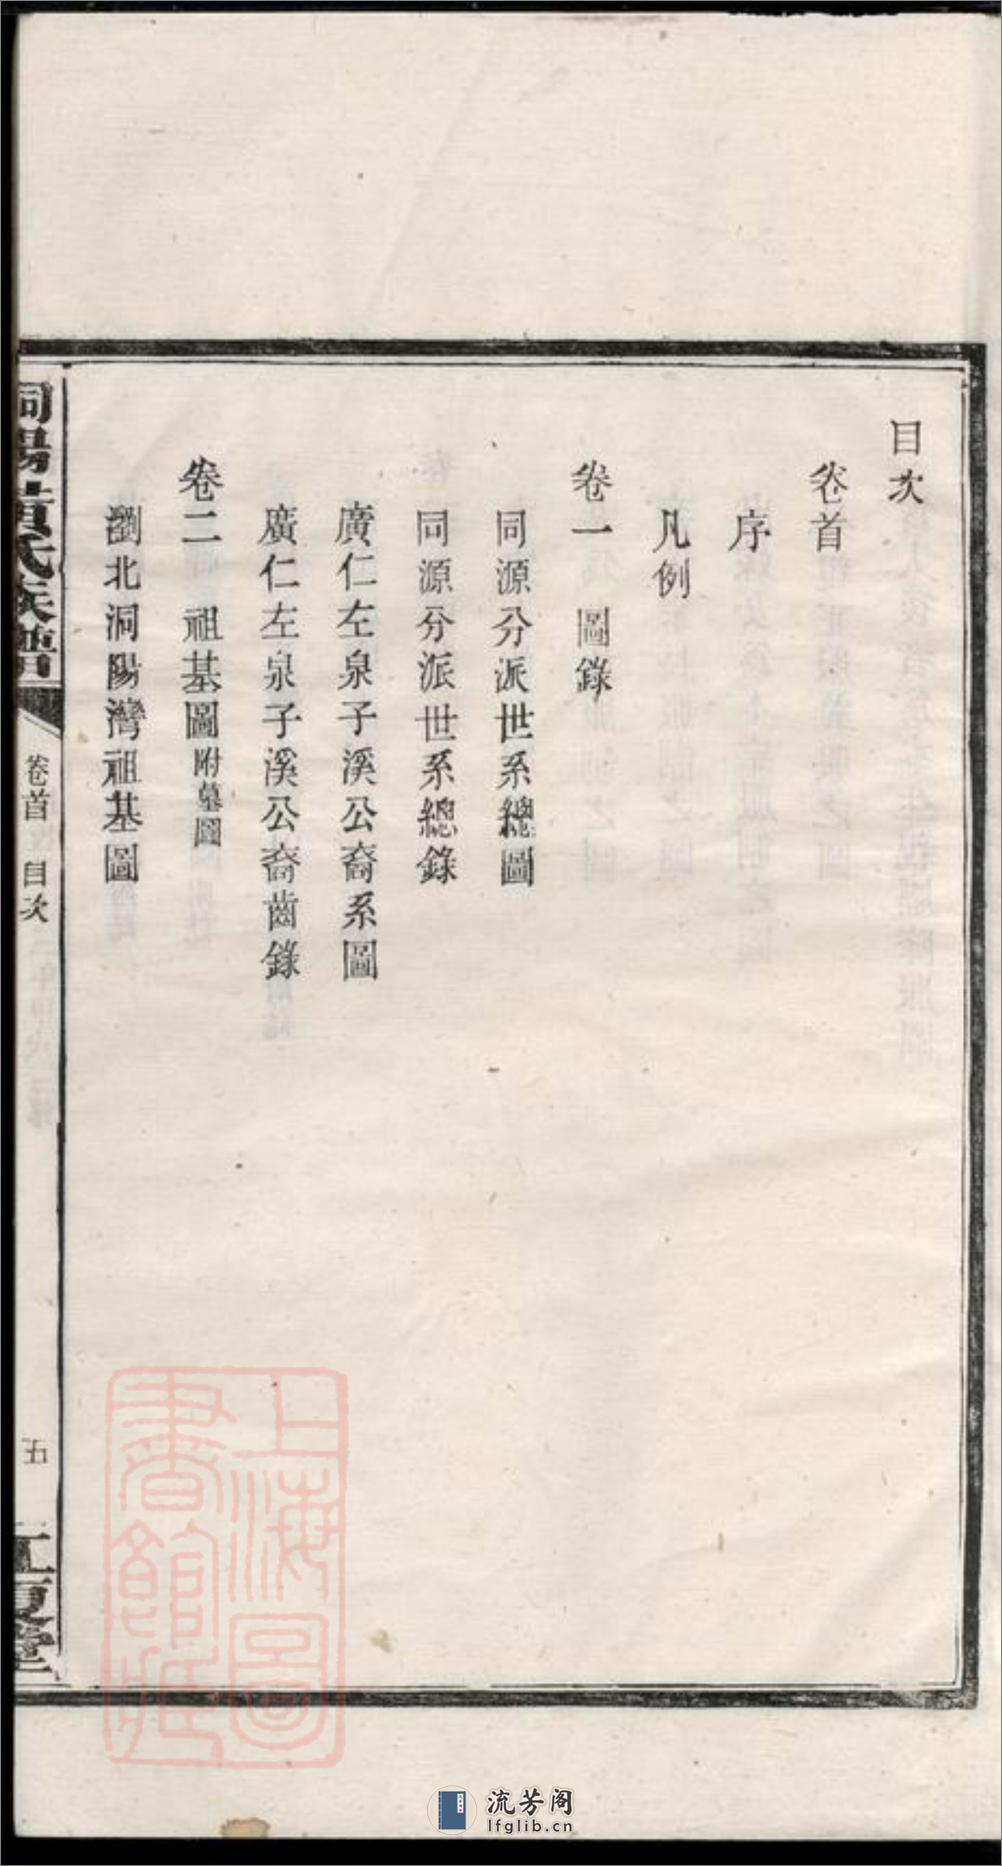 目次
卷首
序
凡例
卷一 圖錄
同源分派世系總圖
同源分派世系總錄
廣仁左泉子溪公裔系圖
廣仁左泉子溪公裔齒錄
卷二 祖基圖附墓圖
瀏北洞陽灣祖基圖
洞陽黃氏族譜
卷首 目次
五
江夏堂
上海圖書館藏
流芳阁
lfglib.cn